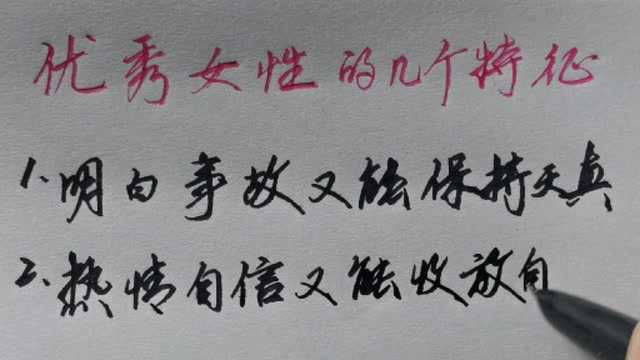 优秀女性的几个特征
1.明白事故又能保持天真
2.热情自信又能收放自